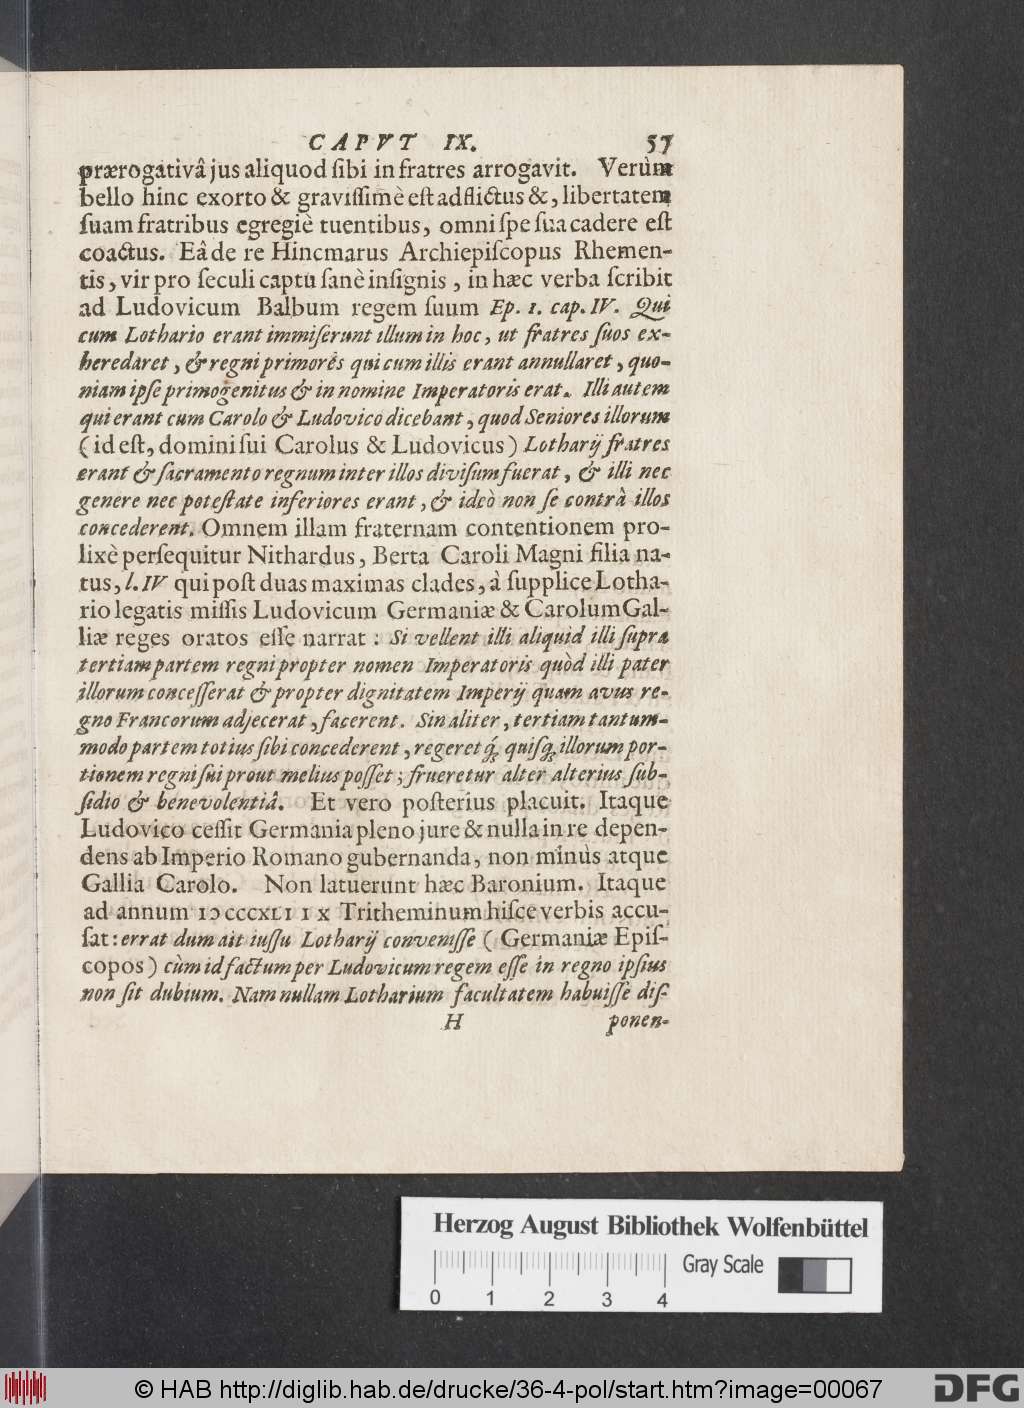 CAPVT IX. 57
prærogativâ jus aliquod ſibi in fratres arrogavit. Verùm
bello hinc exorto & graviſſimè eſt adflictus &, libertatem
ſuam fratribus egregiè tuentibus, omni ſpe ſua cadere eſt
coactus. Eâ de re Hincmarus Archiepiſcopus Rhemen-
tis, vir pro ſeculi captu ſanè inſignis, in hæc verba ſcribit
ad Ludovicum Balbum regem ſuum Ep. 1. cap. IV. Qui
cum Lothario erant immiſerunt illum in hoc, ut fratres ſuos ex-
heredaret, & regni primores qui cum illis erant annullaret, quo-
niam ipſe primogenitus & in nomine Imperatoris erat. Illi autem
qui erant cum Carolo & Ludovico dicebant, quod Seniores illorum
(id eſt, domini ſui Carolus & Ludovicus) Lotharij fratres
erant & ſacramento regnum inter illos diviſum fuerat, & illi nec
genere nec poteſtate inferiores erant, & ideò non ſe contrà illos
concederent. Omnem illam fraternam contentionem pro-
lixè perſequitur Nithardus, Berta Caroli Magni filia na-
tus, l. IV qui poſt duas maximas clades, à ſupplice Lotha-
rio legatis miſſis Ludovicum Germaniæ & Carolum Gal-
liæ reges oratos eſſe narrat: Si vellent illi aliquid illi ſupra
tertiam partem regni propter nomen Imperatoris quòd illi pater
illorum conceſſerat & propter dignitatem Imperij quam avus re-
gno Francorum adjecerat, facerent. Sin aliter, tertiam tantum-
modo partem totius ſibi concederent, regeret q́; quiſq; illorum por-
tionem regni ſui prout melius poſſet; frueretur alter alterius ſub-
ſidio & benevolentiâ. Et vero poſterius placuit. Itaque
Ludovico ceſſit Germania pleno jure & nulla in re depen-
dens ab Imperio Romano gubernanda, non minùs atque
Gallia Carolo. Non latuerunt hæc Baronium. Itaque
ad annum IↃCCCXLI IX Tritheminum hiſce verbis accu-
ſat: errat dum ait iuſſu Lotharij conveniſſe (Germaniæ Epiſ-
copos) cùm id factum per Ludovicum regem eſſe in regno ipſius
non ſit dubium. Nam nullam Lotharium facultatem habuiſſe diſ-
H ponen-
Herzog August Bibliothek Wolfenbüttel
Gray Scale
0 1 2 3 4
© HAB http://diglib.hab.de/drucke/36-4-pol/start.htm?image=00067
DFG